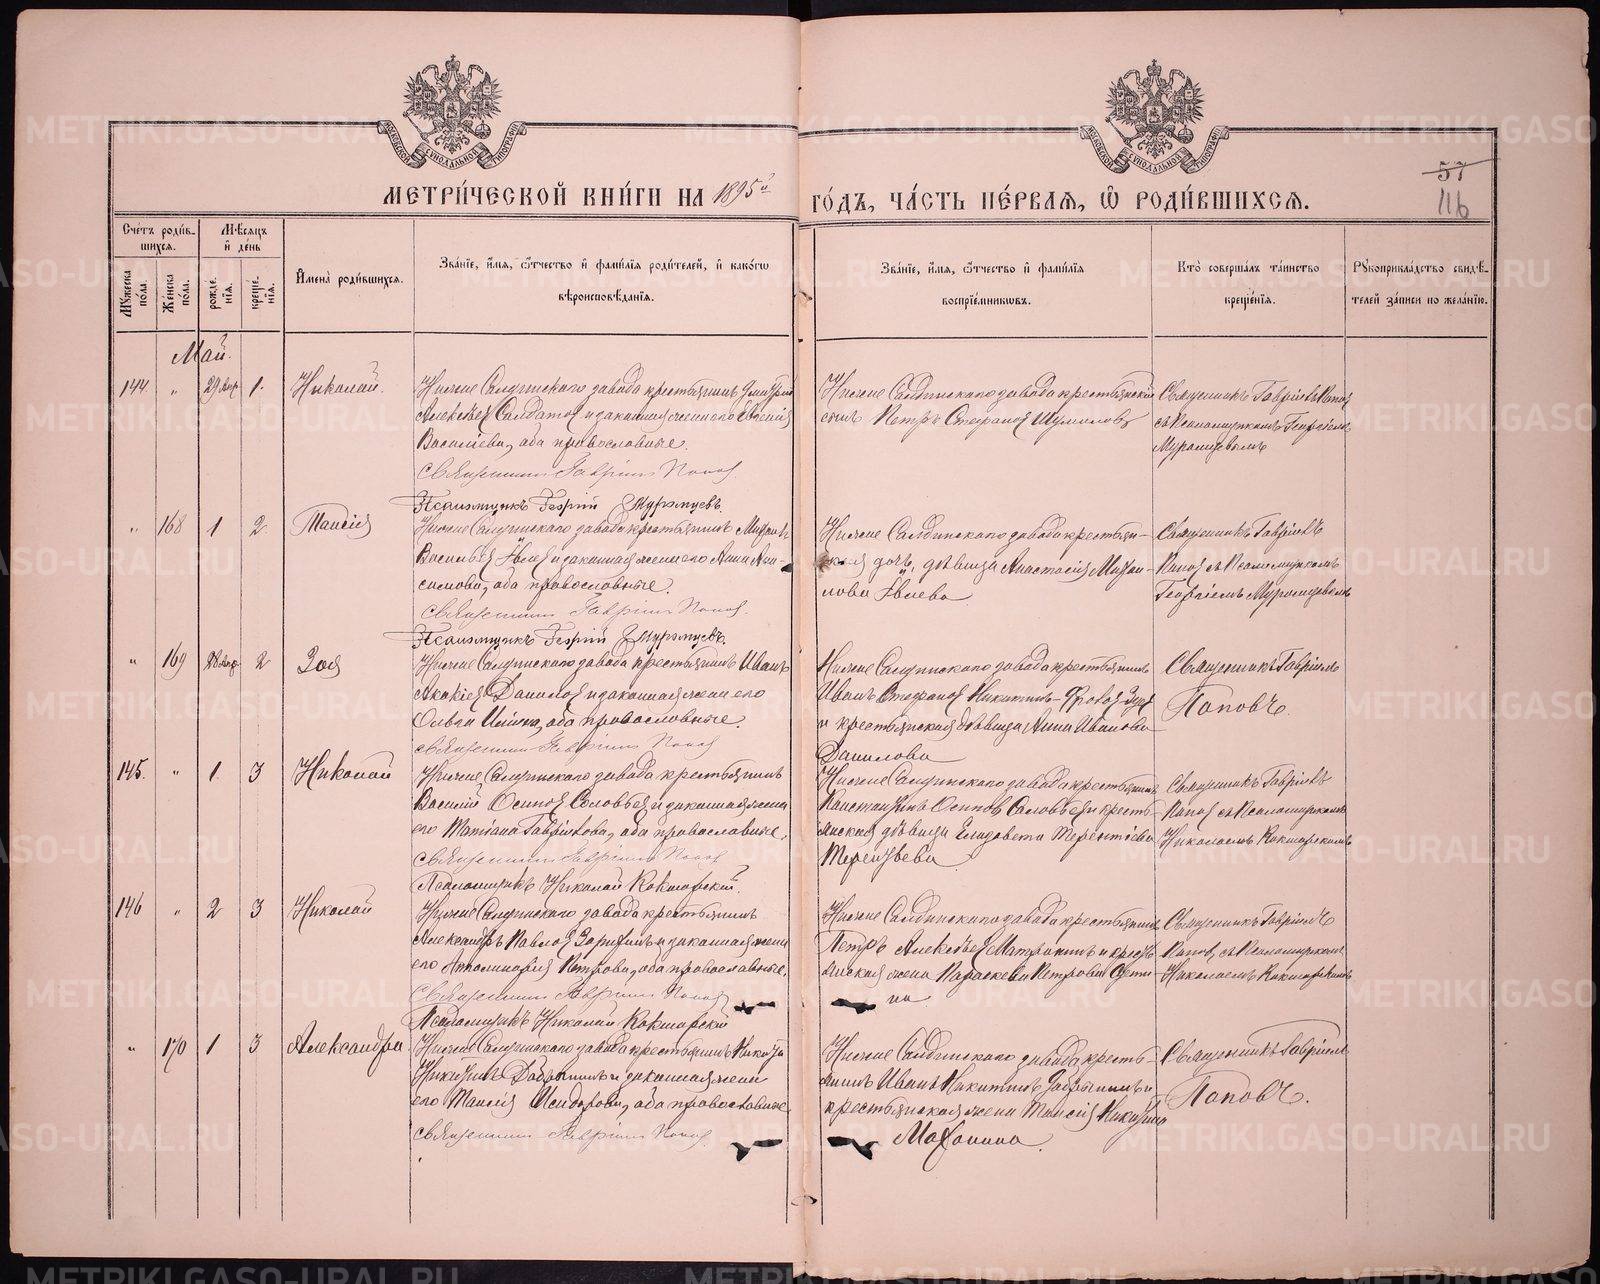 МЕТРИ́ЧЕСКОЙ КНИ́ГИ НА 1895й ГО́ДЪ, ЧА́СТЬ ПЕ́РВАЯ, Ѡ РОДИ́ВШИХСЯ.
57
116
Сче́тъ роди́в-
шихся.
Мѣ́сяцъ
и де́нь
Му́жеска по́ла.
Же́нска по́ла.
рожде́нїя.
креще́нїя.
Имена̀ роди́вшихся.
Зва́нїе, и́мя, о́тчество и фами́лїя роди́телей, и како́гѡ
вѣроисповѣ́данїя.
Зва́нїе, и́мя, о́тчество и фами́лїя
воспрїе́мниковъ.
Кто̀ соверша́лъ та́инство
креще́нїя.
Рукоприкла́дство свидѣ́-
телей за́писи по жела́нїю.
Май.
144 " 29 Апр 1. Николай.
Нижне Салдинскаго завода крестьянинъ Димитрій
Алексѣевъ Солдатовъ и законная жена его Евгенія
Васильева, оба православные.
Священникъ Гавріилъ Поповъ
Псаломщикъ Георгій Муромцевъ.
Нижне Салдинскаго завода крестьянскій
сынъ Петръ Стефановъ Шумиловъ
Священникъ Гавріилъ Поповъ
съ Псаломщикомъ Георгіемъ
Муромцевымъ
" 168 1 2 Таисія
Нижне Салдинскаго завода крестьянинъ Михаилъ
Васильевъ и законная жена его Анна Ани-
симова, оба православные.
Священникъ Гавріилъ Поповъ.
Псаломщикъ Георгій Муромцевъ.
Нижне Салдинскаго завода крестьян-
ская дочь, дѣвица Анастасія Михаи-
лова
Священникъ Гавріилъ
Поповъ съ Псаломщикомъ
Георгіемъ Муромцевымъ
" 169 28 Апр 2 Зоя
Нижне Салдинскаго завода крестьянинъ Иванъ
Акакіевъ Даниловъ и законная жена его
Ольга Ильина, оба православные.
Священникъ Гавріилъ Поповъ
Нижне Салдинскаго завода крестьянинъ
Иванъ Стефановъ Никитинъ
и крестьянская дѣвица Анна Иванова
Данилова
Священникъ Гавріилъ
Поповъ.
145. " 1 3 Николай
Нижне Салдинскаго завода крестьянинъ
Василій Осиповъ Соловьевъ и законная жена
его Татіана Гавріилова, оба православные.
Священникъ Гавріилъ Поповъ
Псаломщикъ Николай Кокшарскій.
Нижне Салдинскаго завода крестьянинъ
Константинъ Осиповъ Соловьевъ и кресть-
янская дѣвица Елизавета Терентіева
Терентьева
Священникъ Гавріилъ
Поповъ съ Псаломщикомъ
Николаемъ Кокшарскимъ
146 " 2 3 Николай
Нижне Салдинскаго завода крестьянинъ
Александръ Павловъ Зорихинъ и законная жена
его Апполинарія Петрова, оба православные.
Священникъ Гавріилъ Поповъ
Псаломщикъ Николай Кокшарскій
Нижне Салдинскаго завода крестьянинъ
Петръ Алексѣевъ и кресть-
янская жена Параскева Петрова
на
Священникъ Гавріилъ
Поповъ, съ Псаломщикомъ
Николаемъ Кокшарскимъ
" 170 1 3 Александра
Нижне Салдинскаго завода крестьянинъ Никита
Никитинъ Добрынинъ и законная жена
его Таисія Исидорова, оба православные.
Священникъ Гавріилъ Поповъ.
Нижне Салдинскаго завода кресть-
янинъ Иванъ Никитинъ Добрынинъ и
крестьянская жена Таисія Никитина
Махонина.
Священникъ Гавріилъ
Поповъ.